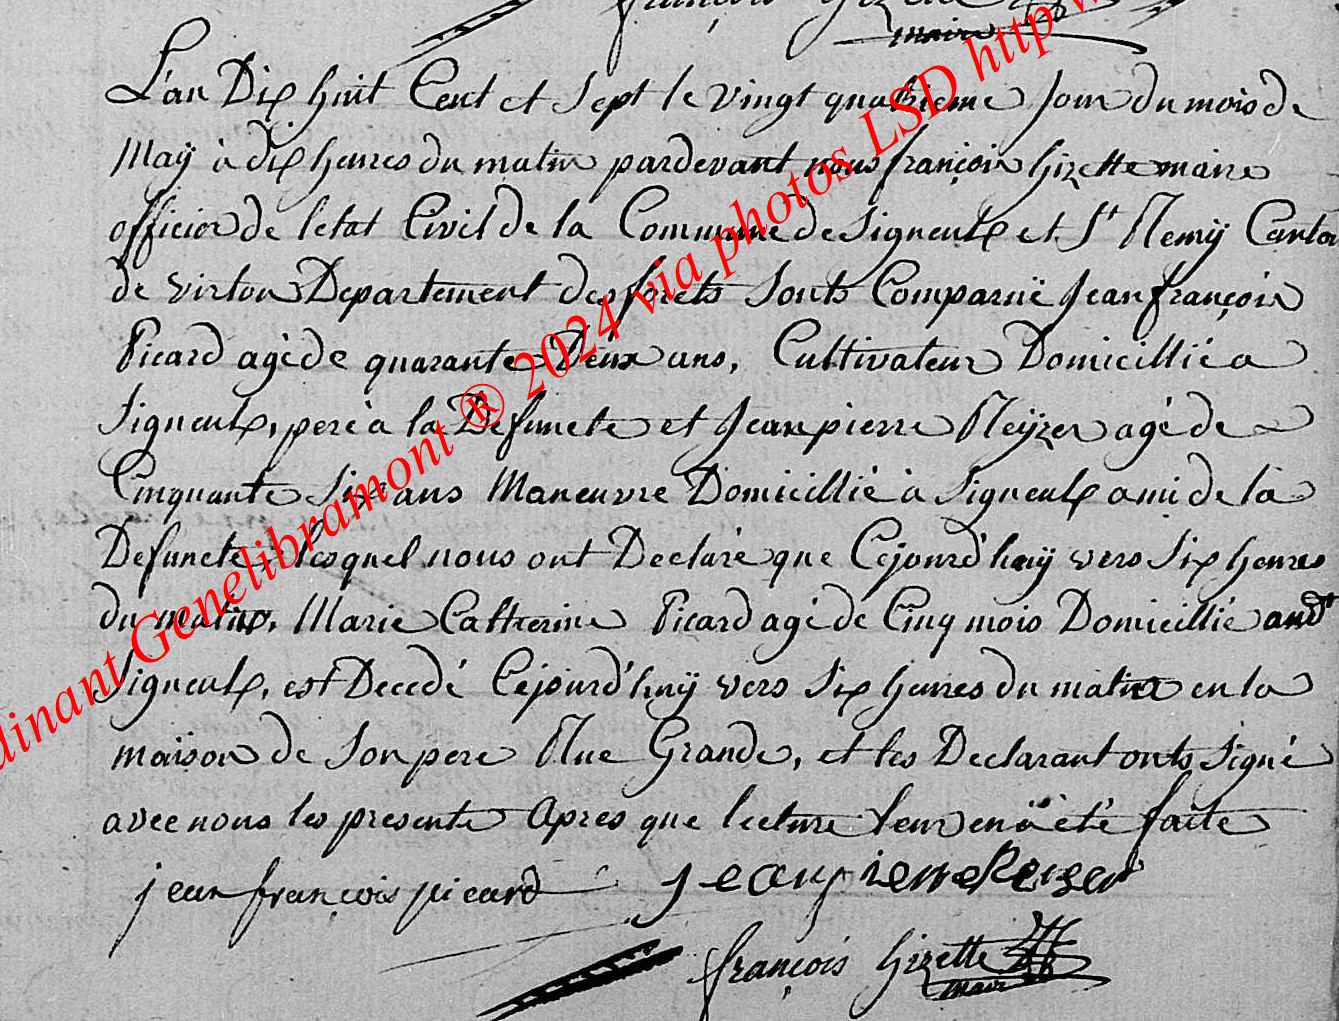 françois Gizette
maire
L'an Dix huit Cent et Sept le vingt quatrieme Jour du mois de
May à dix heures du matin pardevant nous françois Gizette maire
officier de l'etat Civil de la Commune de Signeulx et St Remÿ Canton
de virton Departement des forets Sonts Comparuë Jean françois
Picard agé de quarante Deux ans, Cultivateur Domicillié a
Signeulx, pere à la Defuncte et Jean pierre Reÿzer agé de
Cinquante Six ans Maneuvre Domicillié à Signeulx ami de la
Defuncte, lesquel nous ont Declaré que Cejourd'huÿ vers Six heures
du matin, Marie Catherine Picard agé de Cinq mois Domicillié audt
Signeulx, est Decedé Cejourd'huÿ vers Six heures du matin en la
maison de Son pere Rue Grande, et les Declarant onts Signé
avec nous les presente Apres que lecture leur en à été faite
jean françois picard jeanpierre Reuser
françois Gizette
maire
dinant Genelibramont ® 2024 via photos LSD http